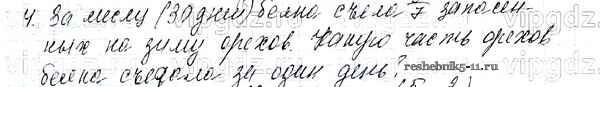 4. За месяц (30 дней) белка съела запасен-
ных на зиму орехов. Какую часть орехов
белка съедала за один день?
reshebnik5-11.ru
vipgdz.